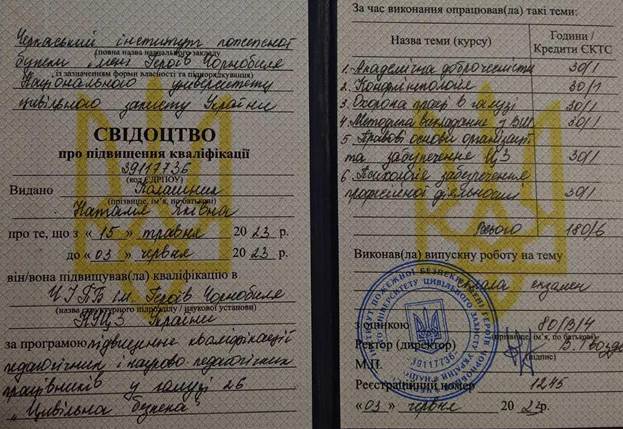 Черкаський інститут пожежної
(повна назва навчального закладу
безпеки імені Героїв Чорнобиля
із зазначенням форми власності та підпорядкування)
Національного університету
цивільного захисту України
СВІДОЦТВО
про підвищення кваліфікації
39117736
(код ЄДРПОУ)
Видано Калашник
(прізвище, ім'я, по батькові)
Наталія Яківна
про те, що з « 15 » травня 20 23 р.
до « 03 » червня 20 23 р.
він/вона підвищував(ла) кваліфікацію в
ЧІПБ ім. Героїв Чорнобиля
(назва структурного підрозділу / наукової установи)
НУЦЗ України
за програмою підвищення кваліфікації
педагогічних і науково-педагогічних
працівників у галузі 26
„Цивільна безпека"
За час виконання опрацював(ла) такі теми:
Назва теми (курсу) Години / Кредити ЄКТС
1. Академічна доброчесність 30/1
2. Конфліктологія 30/1
3. Охорона праці в галузі 30/1
4 Методика викладання у ВШ 30/1
5 Правові основи організації
та забезпечення ЦЗ 30/1
6 Психологія забезпечення
професійної діяльності 30/1
Всього 180/6
Виконав(ла) випускну роботу на тему
склала екзамен
з оцкою 80/В/4
(прізвище, ім'я, по батькові)
Ректор (директор)
(підпис)
М.П.
39117736
Реєстраційний номер 1245
«03» червня 20 р.